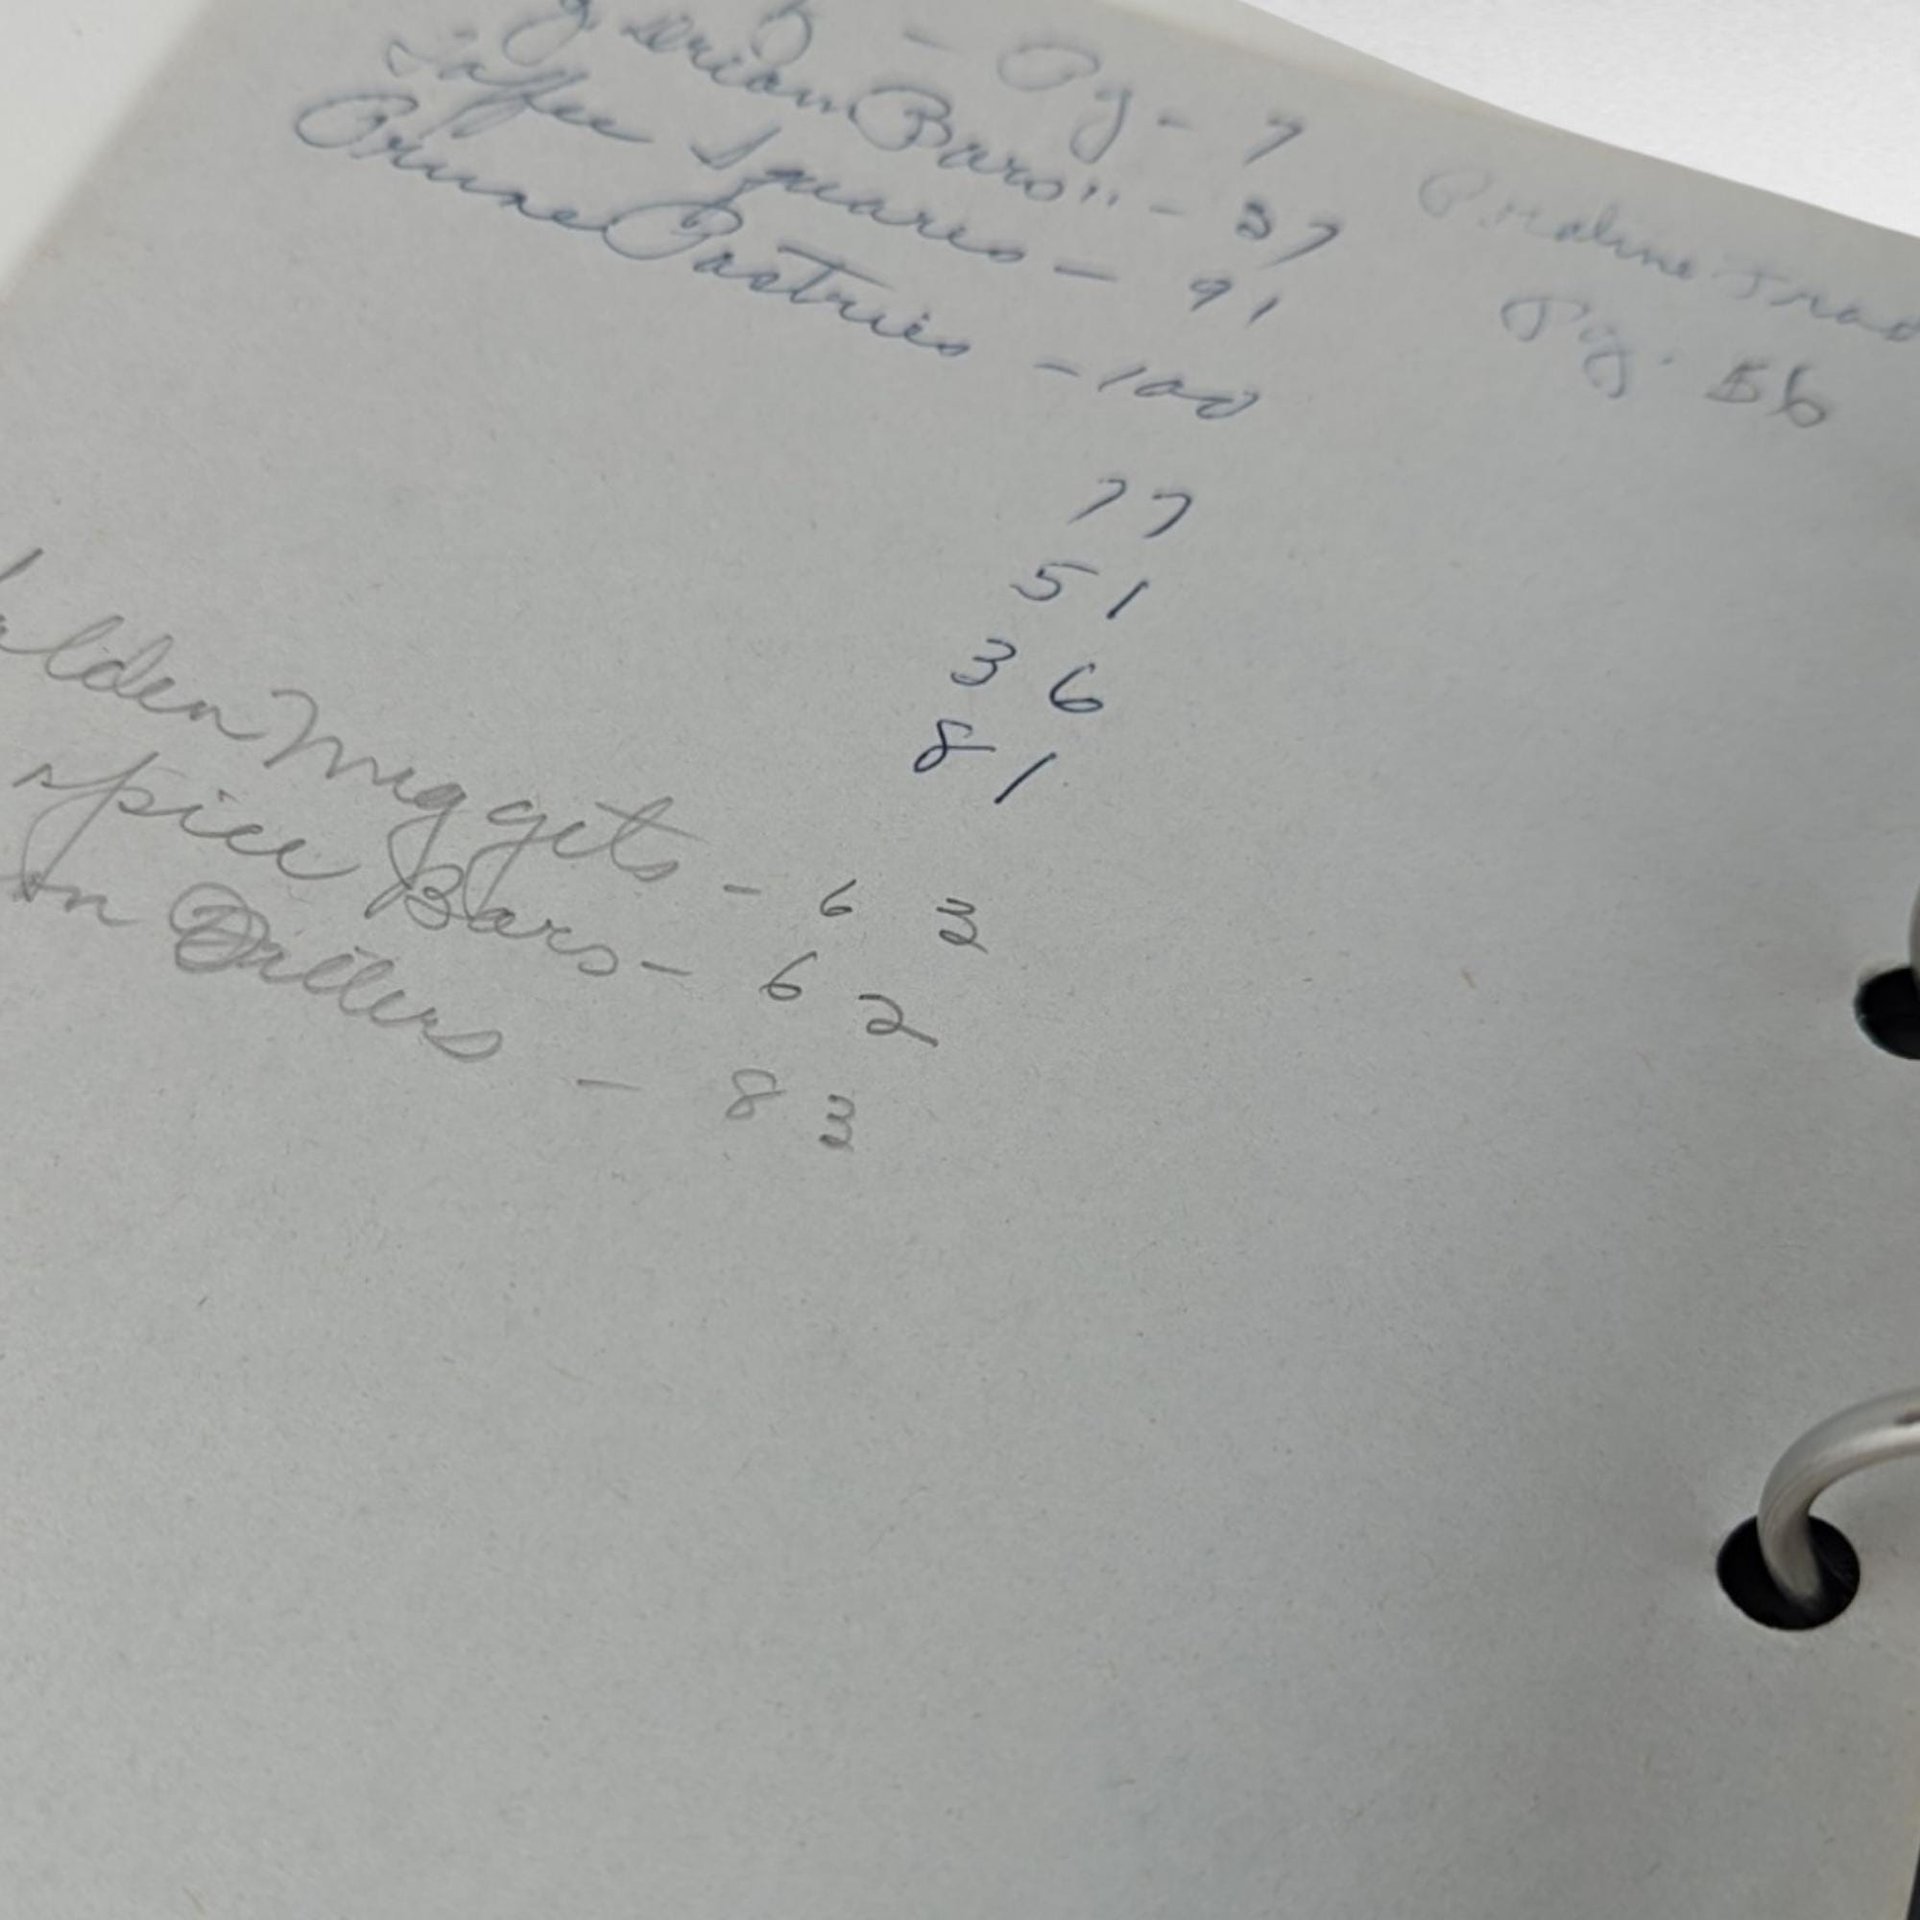 - Pg - 7
Bars" - 37
Toffee Squares - 91
Prune Pastries - 100
Praline
Pg. 56
77
51
36
81
Nuggets - 63
spice Bars - 62
- 83